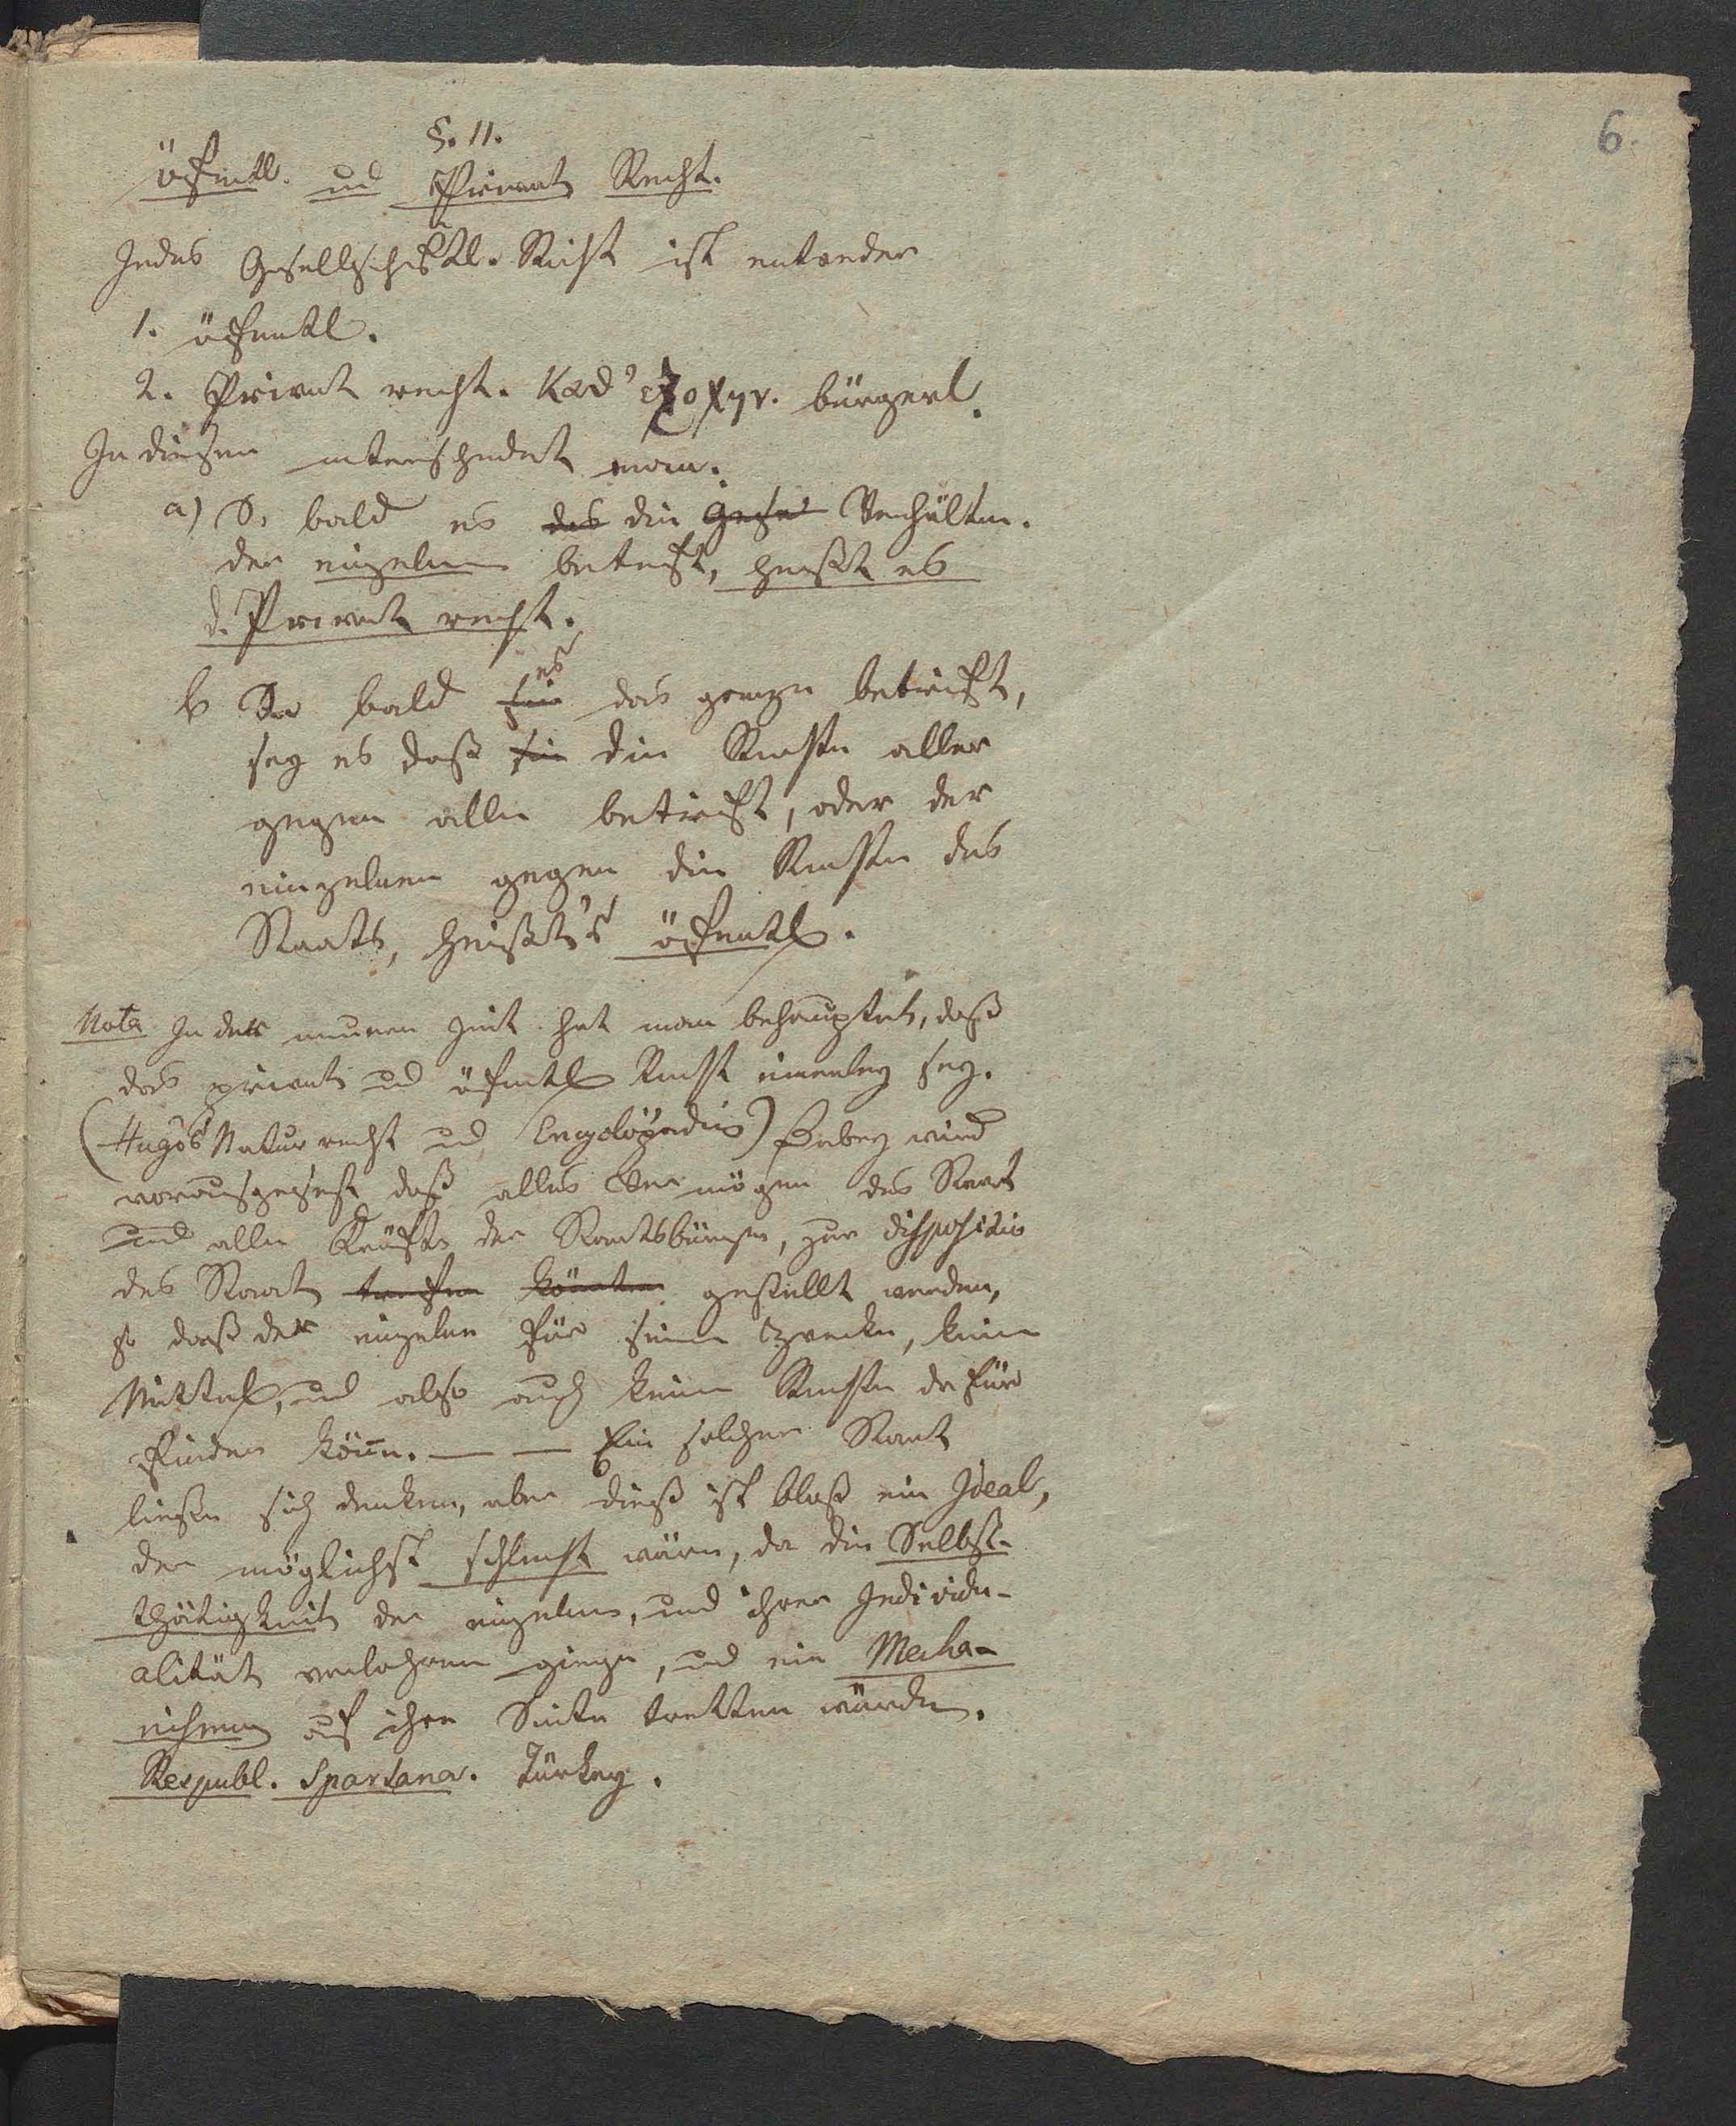 6.
§. 11.
öfentl. und Privat Recht.
Jedes Gesellschaftl. Recht ist entweder
1. öfentl.
2. Privat recht. κατ' εξοχην. bürgerl.
In diesem unterscheidet man.
a) So bald es das die Gese Verhältn.
der einzelnen betrift, heißt es
d. Privat recht.
b So bald sie es das ganze betrift,
sey es daß sie die Rechte aller
gegen alle betrift, oder der
einzelnen gegen die Rechte des
Staats, heißt's öfentl.
Nota In der neuren Zeit hat man behauptet, daß
das privat und öfentl Recht einerley sey.
(Hugos Natur recht und Encyclopädie) Dabey wird
vorausgesezt daß alles Vermögen des Staat
und alle Kräfte der Staatsbürger, zur disposition
des Staat treffen könnten gestellt werden,
so daß der einzelne für seine Zwecke, keine
Mittel, und also auch keine Rechte dafür
finden könn. — — Ein solcher Staat
ließe sich denken, aber dieß ist bloß ein Ideal,
der möglichst schlecht wäre, da die Selbst-
thätigkeit der einzelnen, und ihrer Individu-
alität verlohren gienge, und ein Mecha-
nismus auf ihre Seite tretten würde.
Respubl. Spartana. Türkey.